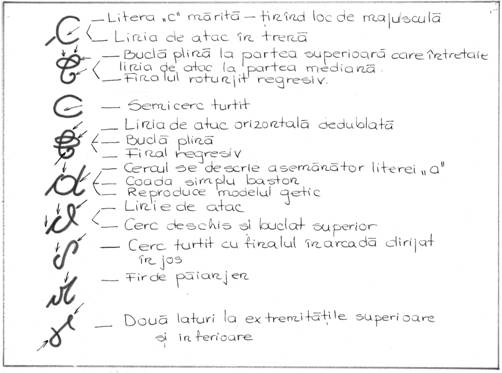 Litera „C" mărită – ținînd loc de majusculă
Linia de atac în trenă
Buclă plină la partea superioară care întretaie
linia de atac la partea mediană.
Finalul roturjit regresiv.
Semicerc turtit
Linia de atac orizontală dedublată
Buclă plină
Final regresiv
Cercul se descrie asemănător literei „a"
Coada simplu baston
Reproduce modelul getic
Linie de atac
Cerc deschis si buclat superior
Cerc turtit cu finalul în arcadă dirijat
în jos
Fir de păianjen
Două laturi la extremitățile superioare
și inferioare